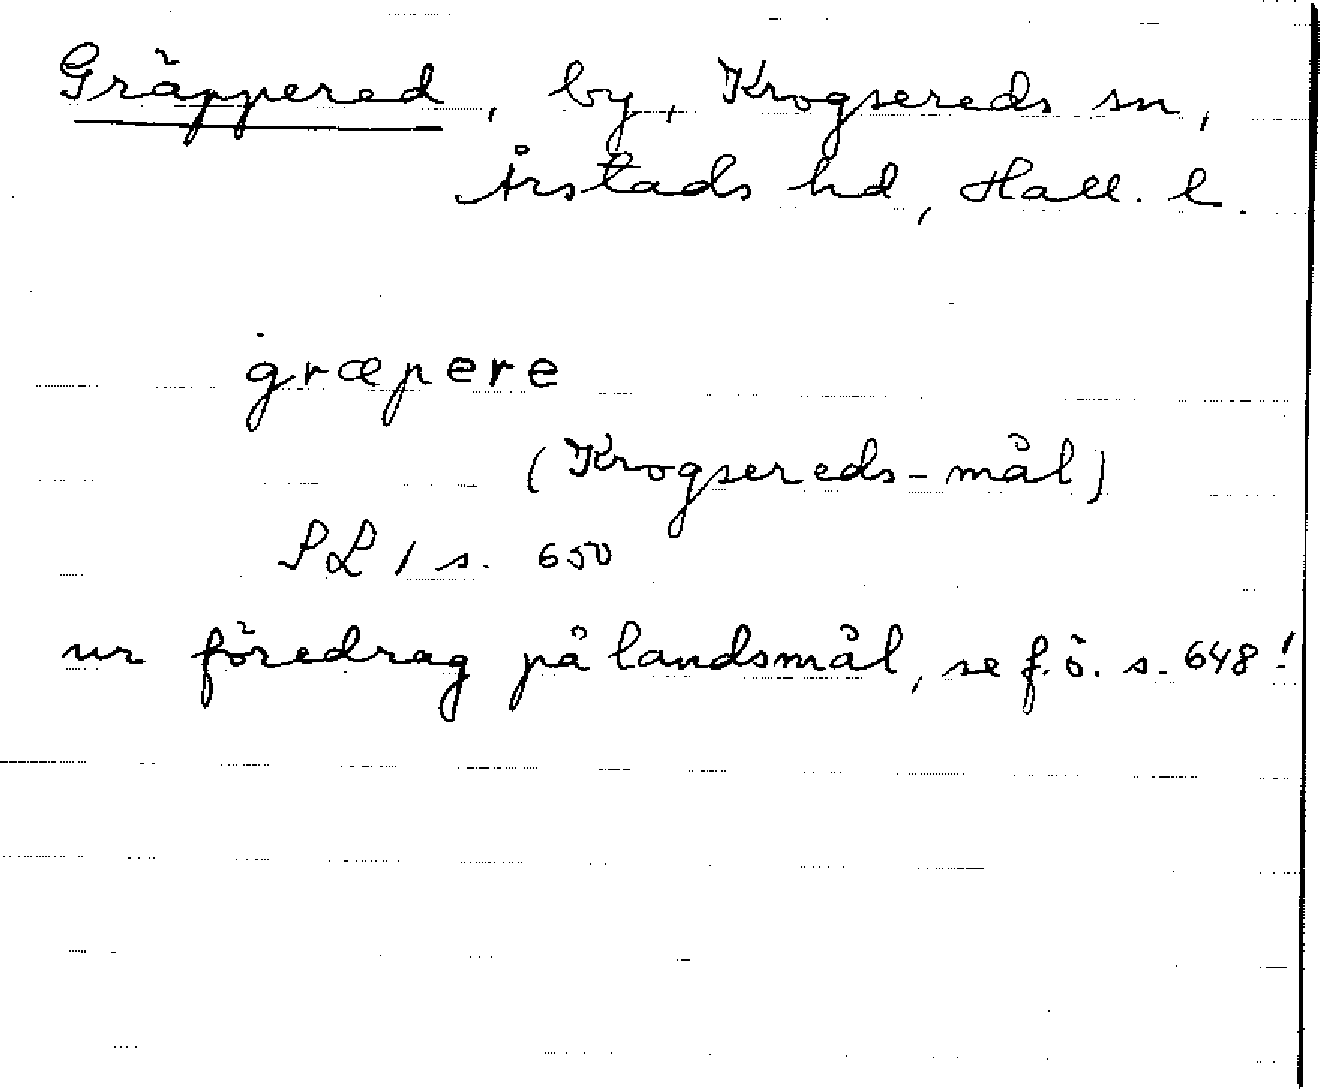 Gräppered, by, Krogsereds sn,
Årstads hd, Hall. l.
græpere
(Krogsereds-mål)
SL 1 s. 650
ur föredrag på landsmål, se f. ö. s. 648!